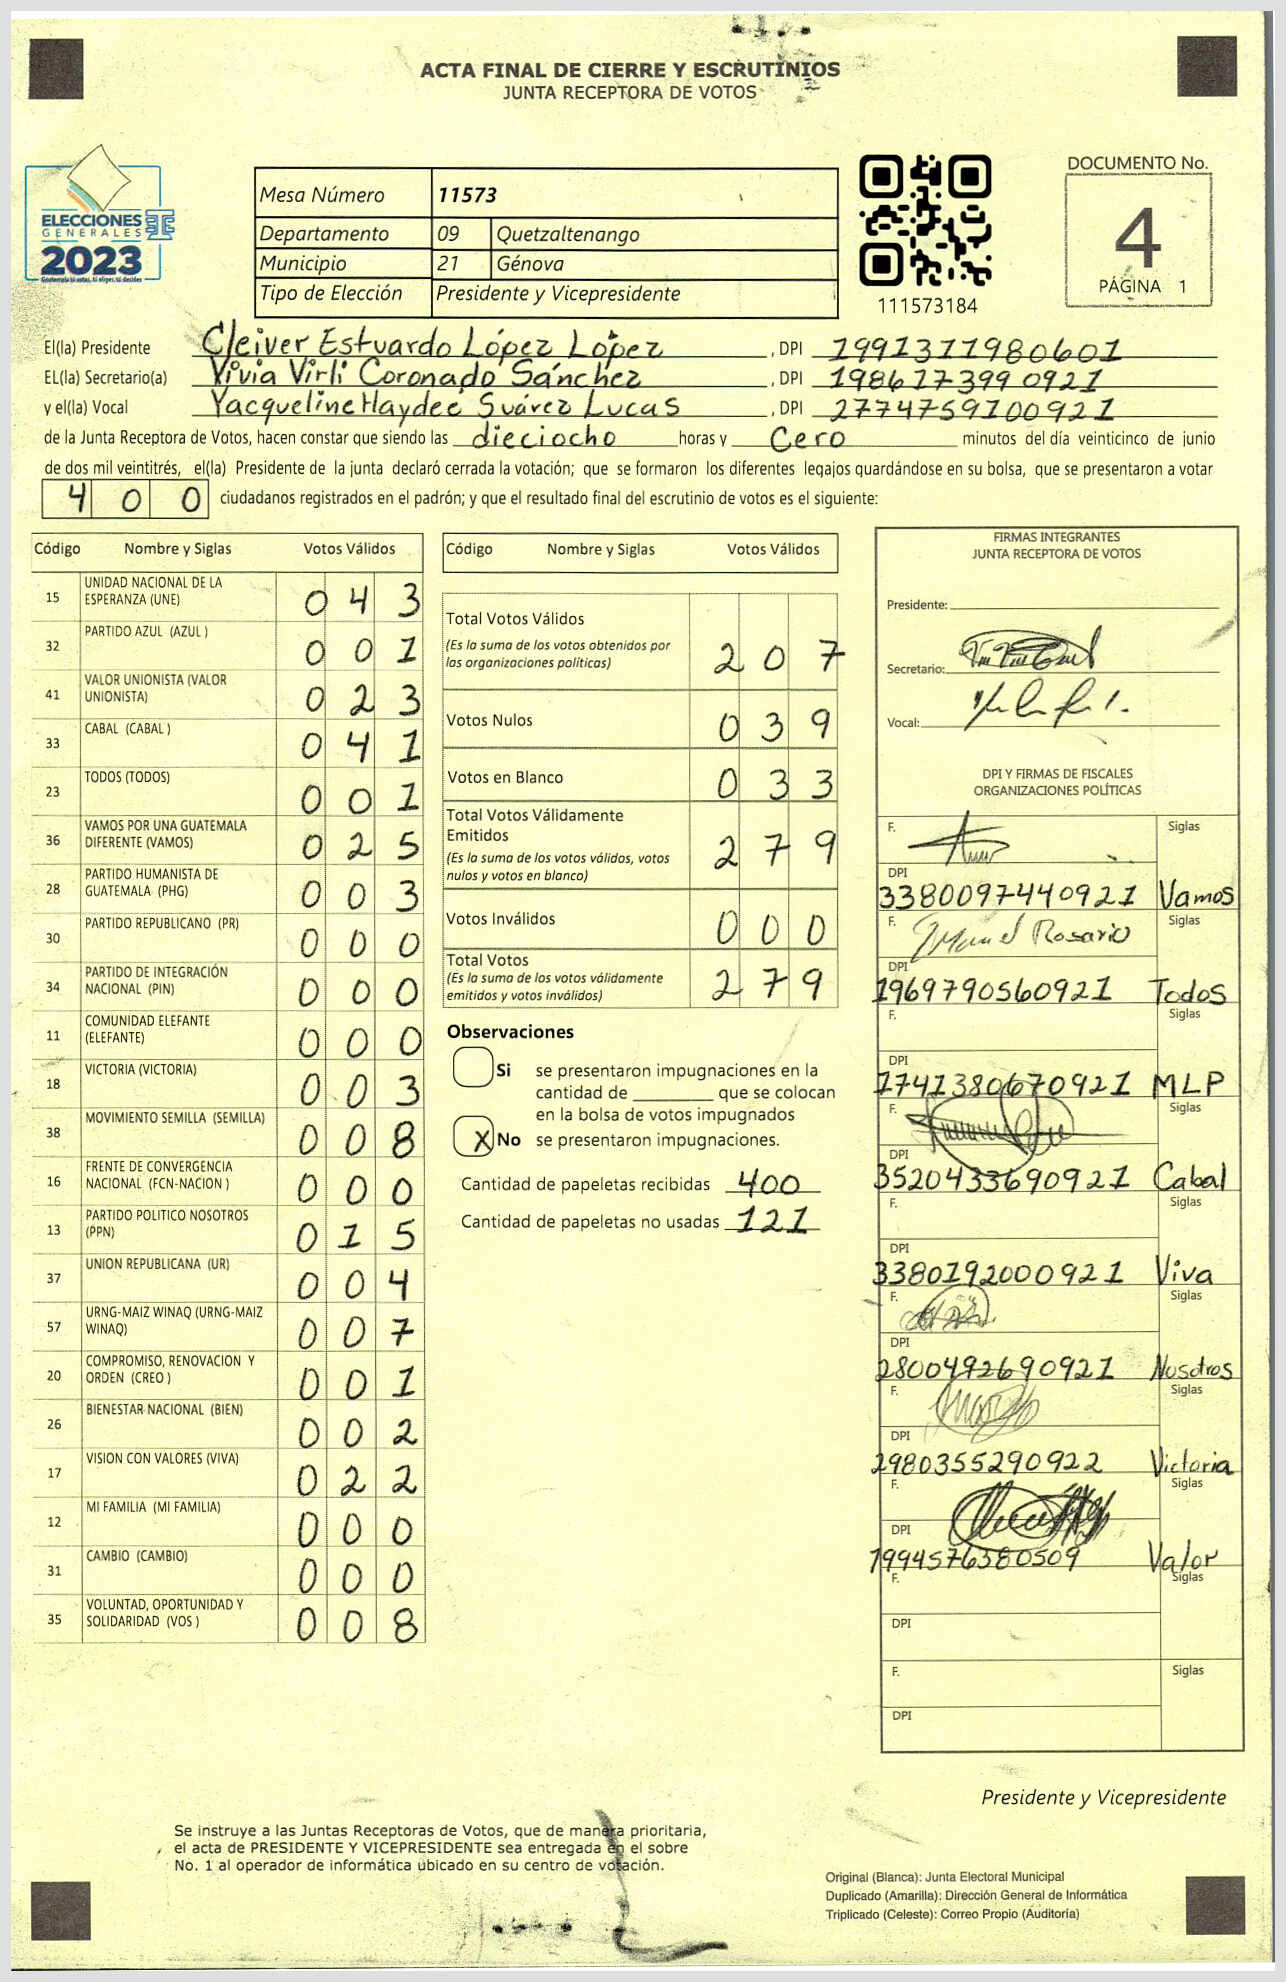 ACTA FINAL DE CIERRE Y ESCRUTINIOS
JUNTA RECEPTORA DE VOTOS
ELECCIONES
GENERALES
2023
Guatemala tú votas, tú eliges, tú decides
Mesa Número 11573
Departamento 09 Quetzaltenango
Municipio 21 Génova
Tipo de Elección Presidente y Vicepresidente
111573184
DOCUMENTO No.
4
PÁGINA 1
El(la) Presidente Cleiver Estuardo López López, DPI 1991311980601
EL(la) Secretario(a) Vivia Virli Coronado Sánchez, DPI 1986173990921
y el(la) Vocal Yacqueline Haydeé Suárez Lucas, DPI 2774759100921
de la Junta Receptora de Votos, hacen constar que siendo las dieciocho horas y Cero minutos del día veinticinco de junio
de dos mil veintitrés, el(la) Presidente de la junta declaró cerrada la votación; que se formaron los diferentes legajos guardándose en su bolsa, que se presentaron a votar
400 ciudadanos registrados en el padrón; y que el resultado final del escrutinio de votos es el siguiente:
Código Nombre y Siglas Votos Válidos
15 UNIDAD NACIONAL DE LA ESPERANZA (UNE) 043
32 PARTIDO AZUL (AZUL ) 001
41 VALOR UNIONISTA (VALOR UNIONISTA) 023
33 CABAL (CABAL ) 041
23 TODOS (TODOS) 001
36 VAMOS POR UNA GUATEMALA DIFERENTE (VAMOS) 025
28 PARTIDO HUMANISTA DE GUATEMALA (PHG) 003
30 PARTIDO REPUBLICANO (PR) 000
34 PARTIDO DE INTEGRACIÓN NACIONAL (PIN) 000
11 COMUNIDAD ELEFANTE (ELEFANTE) 000
18 VICTORIA (VICTORIA) 003
38 MOVIMIENTO SEMILLA (SEMILLA) 008
16 FRENTE DE CONVERGENCIA NACIONAL (FCN-NACION ) 000
13 PARTIDO POLITICO NOSOTROS (PPN) 015
37 UNION REPUBLICANA (UR) 004
57 URNG-MAIZ WINAQ (URNG-MAIZ WINAQ) 007
20 COMPROMISO, RENOVACION Y ORDEN (CREO ) 001
26 BIENESTAR NACIONAL (BIEN) 002
17 VISION CON VALORES (VIVA) 022
12 MI FAMILIA (MI FAMILIA) 000
31 CAMBIO (CAMBIO) 000
35 VOLUNTAD, OPORTUNIDAD Y SOLIDARIDAD (VOS ) 008
Código Nombre y Siglas Votos Válidos
Total Votos Válidos 207
(Es la suma de los votos obtenidos por
las organizaciones políticas)
Votos Nulos 039
Votos en Blanco 033
Total Votos Válidamente
Emitidos 279
(Es la suma de los votos válidos, votos
nulos y votos en blanco)
Votos Inválidos 000
Total Votos 279
(Es la suma de los votos válidamente
emitidos y votos inválidos)
Observaciones
Si se presentaron impugnaciones en la
cantidad de ________ que se colocan
en la bolsa de votos impugnados
X No se presentaron impugnaciones.
Cantidad de papeletas recibidas 400
Cantidad de papeletas no usadas 121
FIRMAS INTEGRANTES
JUNTA RECEPTORA DE VOTOS
Presidente:
Secretario:
Vocal:
DPI Y FIRMAS DE FISCALES
ORGANIZACIONES POLÍTICAS
F. Siglas
DPI
3380097440921 Vamos
F. Manuel Rosario Siglas
DPI
1969790560921 Todos
F. Siglas
DPI
1741380670921 MLP
F. Siglas
DPI
3520433690921 Cabal
F. Siglas
DPI
3380192000921 Viva
F. Siglas
DPI
2800492690921 Nosotros
F. Siglas
DPI
2980355290922 Victoria
F. Siglas
DPI
1994576380509 Valor
F. Siglas
DPI
F. Siglas
DPI
Presidente y Vicepresidente
Se instruye a las Juntas Receptoras de Votos, que de manera prioritaria,
el acta de PRESIDENTE Y VICEPRESIDENTE sea entregada en el sobre
No. 1 al operador de informática ubicado en su centro de votación.
Original (Blanca): Junta Electoral Municipal
Duplicado (Amarilla): Dirección General de Informática
Triplicado (Celeste): Correo Propio (Auditoría)